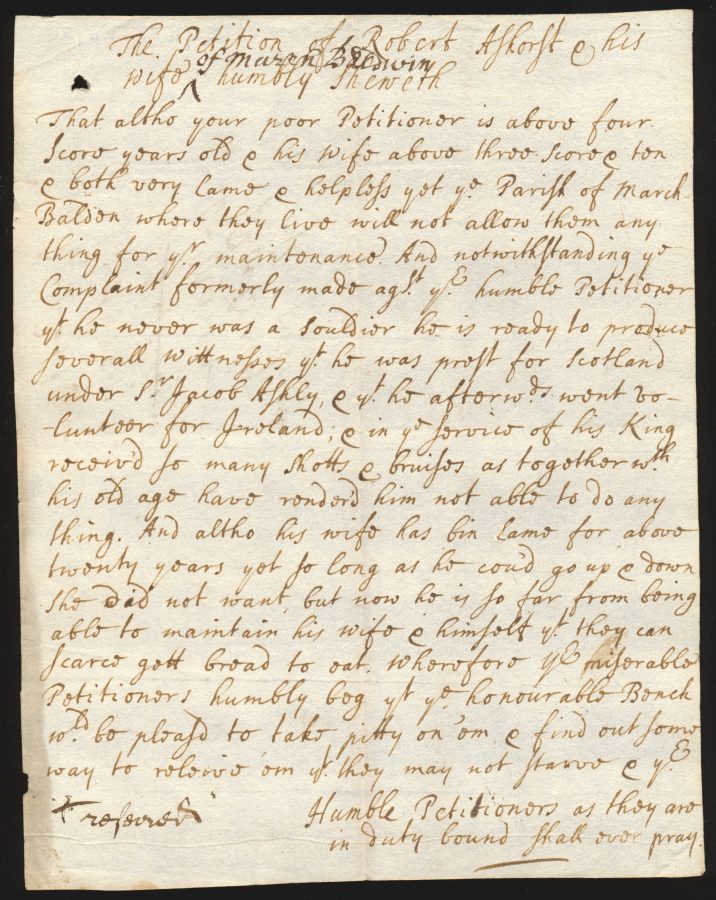 The Petition of Robert Ashorst & his
of Marsh Baldwin
wife ^ humbly Sheweth
That altho your poor Petitioner is above four
Score years old & his wife above three Score & ten
& both very lame & helpless yet ye Parish of March
Balden where they live will not allow them any
thing for yr maintenance. And notwithstanding ye
Complaint formerly made agst yr humble Petitioner
yt he never was a Souldier he is ready to produce
severall wittnesses yt he was prest for Scotland
under Sr Jacob Ashly, & yt he afterwds went vo-
-lunteer for Ireland; & in ye service of his King
receiv'd so many Shotts & bruises as together wth
his old age have renderd him not able to do any
thing. And altho his wife has bin lame for above
twenty years yet so long as he cou'd go up & down
She did not want, but now he is so far from being
able to maintain his wife & himself yt they can
scarce gett bread to eat. Wherefore yr miserable
Petitioners humbly beg yt ye honourable Bench
wld be pleasd to take pitty on 'em, & find out some
way to releive 'em yt they may not starve & yr
Humble Petitioners as they are
in duty bound shall ever pray.
referred